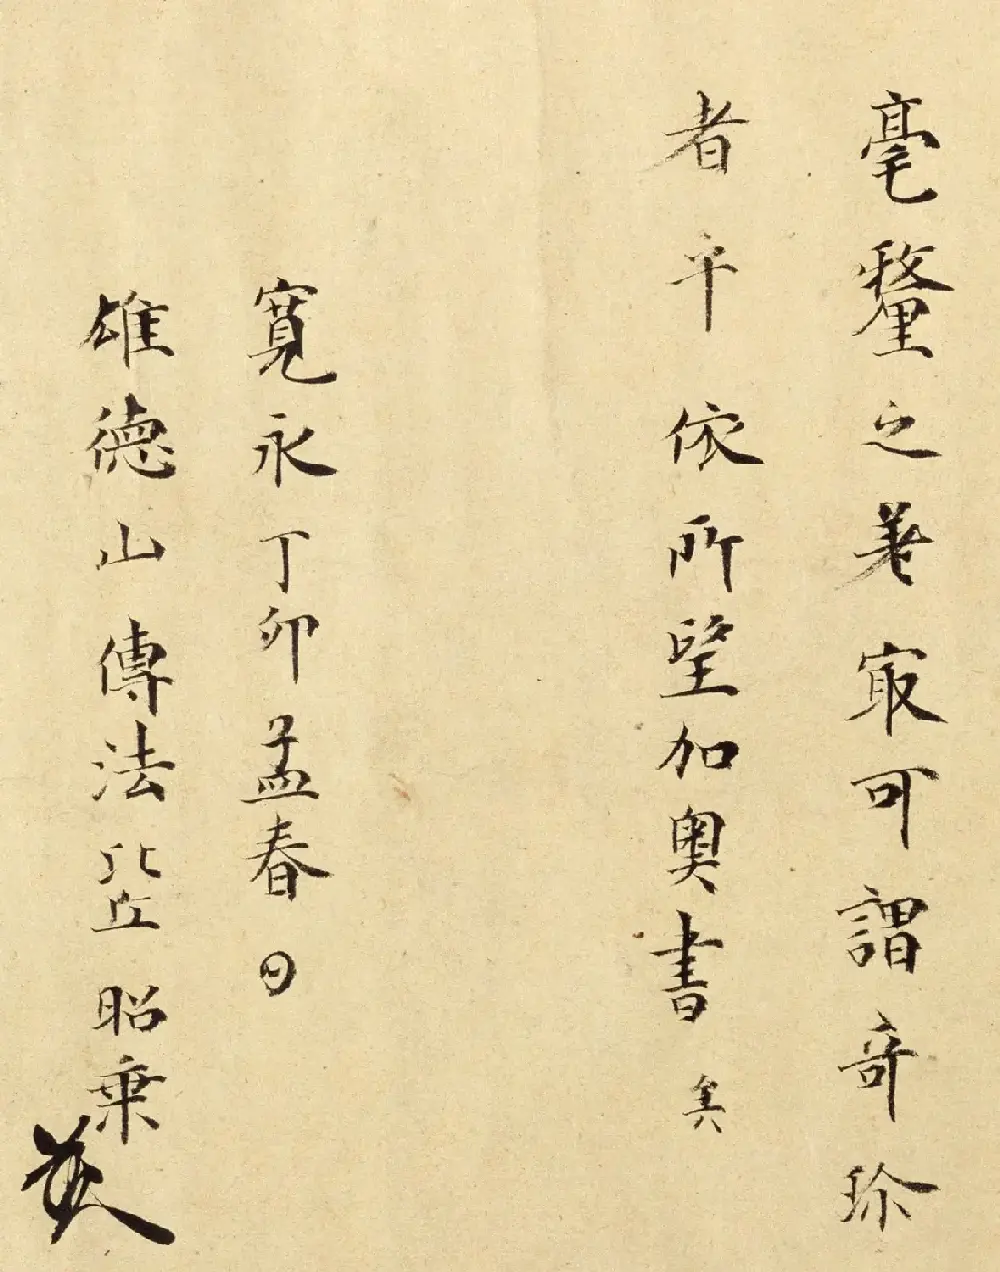 毫釐之差寂可謂奇珎
者乎依所望加奥書矣
寛永丁卯孟春日
雄德山傳法比丘昭乗